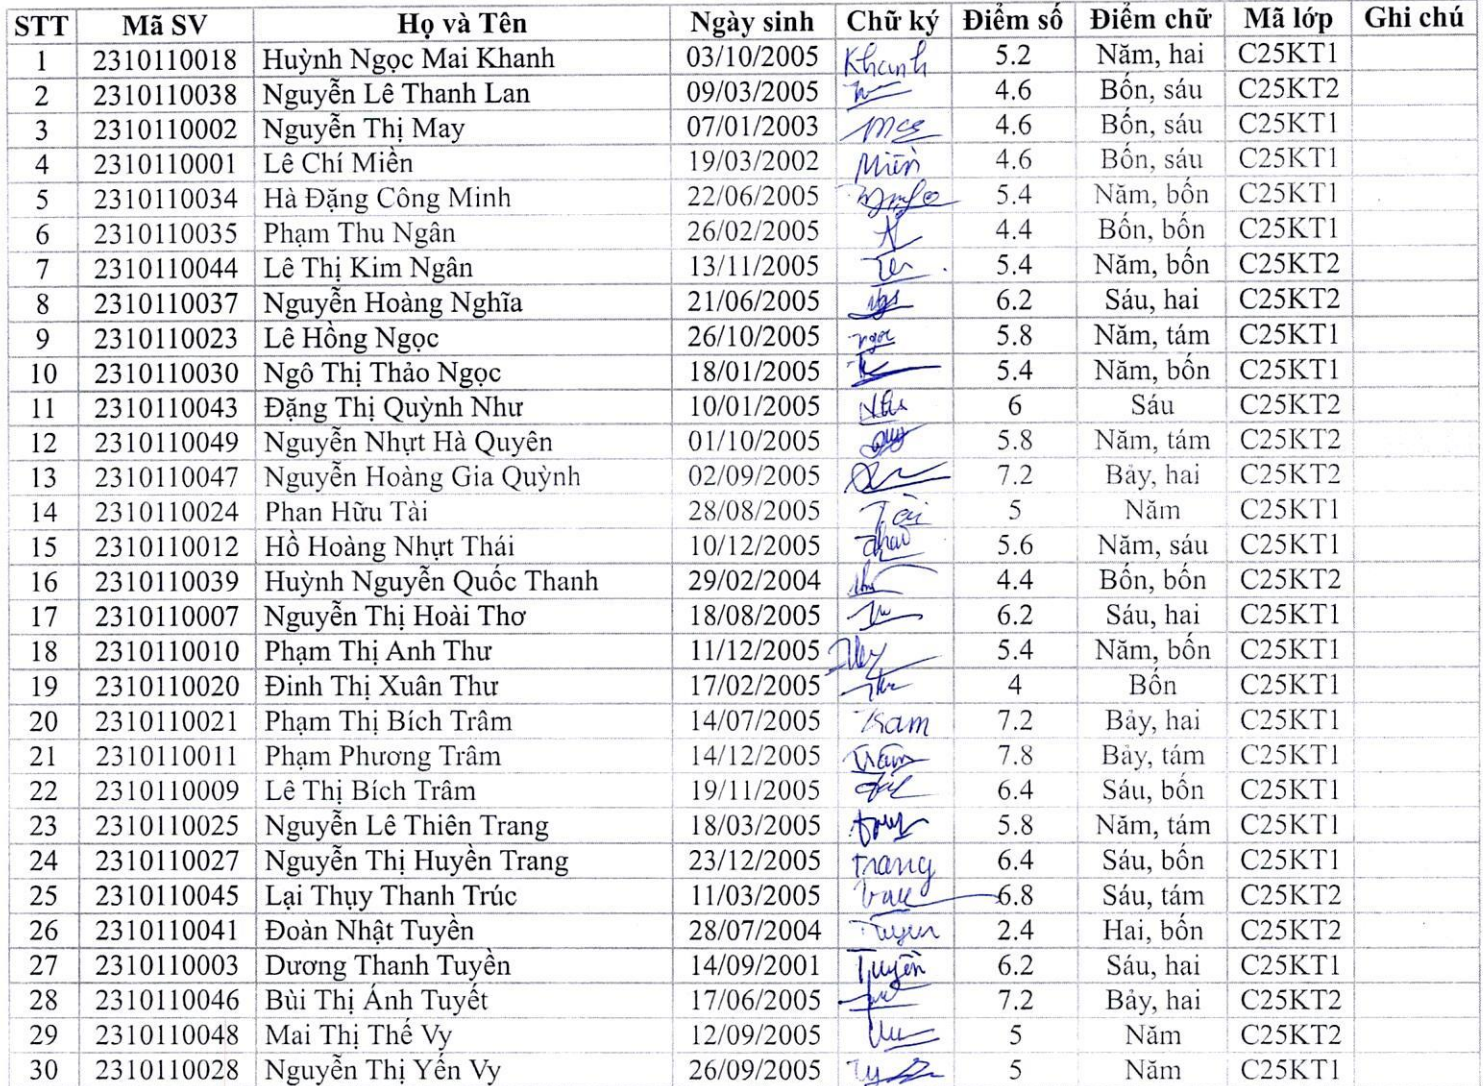 STT Mã SV Họ và Tên Ngày sinh Chữ ký Điểm số Điểm chữ Mã lớp Ghi chú
1 2310110018 Huỳnh Ngọc Mai Khanh 03/10/2005 Khanh 5.2 Năm, hai C25KT1
2 2310110038 Nguyễn Lê Thanh Lan 09/03/2005 4.6 Bốn, sáu C25KT2
3 2310110002 Nguyễn Thị May 07/01/2003 4.6 Bốn, sáu C25KT1
4 2310110001 Lê Chí Miền 19/03/2002 Miền 4.6 Bốn, sáu C25KT1
5 2310110034 Hà Đặng Công Minh 22/06/2005 5.4 Năm, bốn C25KT1
6 2310110035 Phạm Thu Ngân 26/02/2005 4.4 Bốn, bốn C25KT1
7 2310110044 Lê Thị Kim Ngân 13/11/2005 5.4 Năm, bốn C25KT2
8 2310110037 Nguyễn Hoàng Nghĩa 21/06/2005 6.2 Sáu, hai C25KT2
9 2310110023 Lê Hồng Ngọc 26/10/2005 ngọc 5.8 Năm, tám C25KT1
10 2310110030 Ngô Thị Thảo Ngọc 18/01/2005 5.4 Năm, bốn C25KT1
11 2310110043 Đặng Thị Quỳnh Như 10/01/2005 6 Sáu C25KT2
12 2310110049 Nguyễn Nhựt Hà Quyên 01/10/2005 5.8 Năm, tám C25KT2
13 2310110047 Nguyễn Hoàng Gia Quỳnh 02/09/2005 7.2 Bảy, hai C25KT2
14 2310110024 Phan Hữu Tài 28/08/2005 Tài 5 Năm C25KT1
15 2310110012 Hồ Hoàng Nhựt Thái 10/12/2005 5.6 Năm, sáu C25KT1
16 2310110039 Huỳnh Nguyễn Quốc Thanh 29/02/2004 4.4 Bốn, bốn C25KT2
17 2310110007 Nguyễn Thị Hoài Thơ 18/08/2005 6.2 Sáu, hai C25KT1
18 2310110010 Phạm Thị Anh Thư 11/12/2005 5.4 Năm, bốn C25KT1
19 2310110020 Đinh Thị Xuân Thư 17/02/2005 4 Bốn C25KT1
20 2310110021 Phạm Thị Bích Trâm 14/07/2005 Tram 7.2 Bảy, hai C25KT1
21 2310110011 Phạm Phương Trâm 14/12/2005 Trâm 7.8 Bảy, tám C25KT1
22 2310110009 Lê Thị Bích Trâm 19/11/2005 6.4 Sáu, bốn C25KT1
23 2310110025 Nguyễn Lê Thiên Trang 18/03/2005 5.8 Năm, tám C25KT1
24 2310110027 Nguyễn Thị Huyền Trang 23/12/2005 Trang 6.4 Sáu, bốn C25KT1
25 2310110045 Lại Thụy Thanh Trúc 11/03/2005 6.8 Sáu, tám C25KT2
26 2310110041 Đoàn Nhật Tuyền 28/07/2004 Tuyen 2.4 Hai, bốn C25KT2
27 2310110003 Dương Thanh Tuyền 14/09/2001 Tuyền 6.2 Sáu, hai C25KT1
28 2310110046 Bùi Thị Ánh Tuyết 17/06/2005 7.2 Bảy, hai C25KT2
29 2310110048 Mai Thị Thế Vy 12/09/2005 5 Năm C25KT2
30 2310110028 Nguyễn Thị Yến Vy 26/09/2005 5 Năm C25KT1